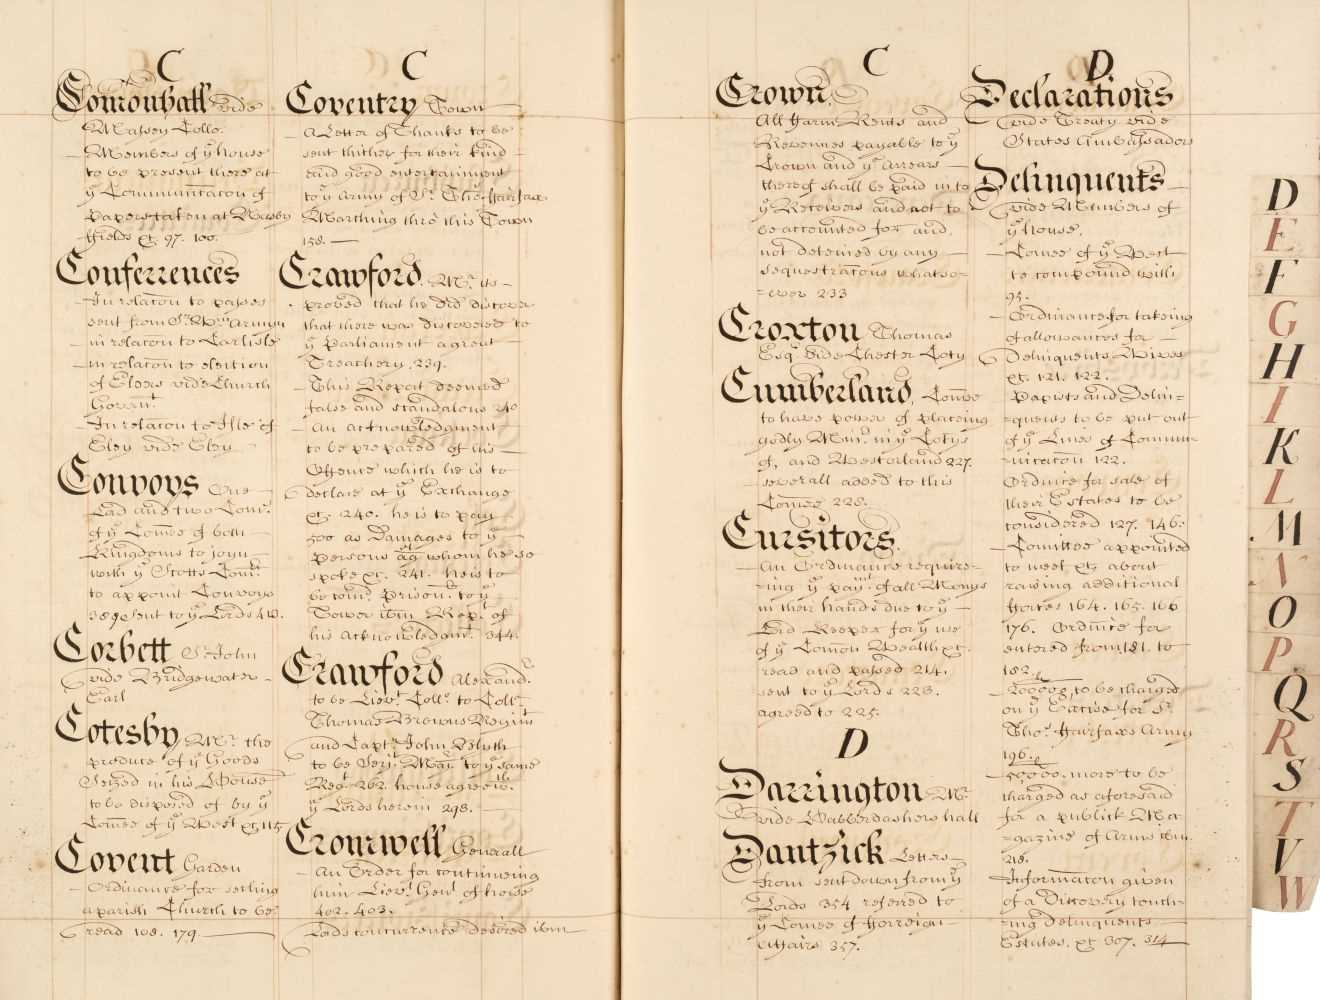 C
Com̃onhall vide
Massey Collo:
Members of yͤ house
to be present there at
yͤ Communicac̃on of
Papers taken at Naseby
ffields &c. 97. 100.
Conferrences
In relac̃on to passes
sent from Sʳ Wᵐ Armyn
in relac̃on to Carlisle
in relac̃on to election
of Elders vide Church
Governᵗ
In relac̃on to Isle of
Eley vide Eley
Convoys One
Lord and two Com̃:
of yͤ Com̃ee of both
Kingdoms to joyn
with yͤ Scotts Com̃:
to appoint Convoys
389 sent to yͤ Lords 410.
Corbett Sʳ John
vide Bridgewater
Earl
Cotesby Mʳ the
produce of yͤ Goods
Seized in his House
to be disposed of by yͤ
Com̃ee of yͤ West &c 115
Covent Garden
Ordinance for setling
a parish Church to be
read 108. 179.
C
Coventry Town
A Letter of Thanks to be
sent thither for their kind
and good entertainment
to yͤ Army of Sʳ Tho: Fairfax
Marching thrõ this Town
158.
Crawford Mʳ is
proved that he did discover
that there was discovered to
yͤ Parliament a great
Treachery, 239.
This Report deemed
false and scandalous 240
An acknowledgment
to be prepared of his
Offence which he is to
declare at yͤ Exchange
&c. 240. he is to pay
500 as Damages to yͤ
Persons agᵗ whom he so
spoke &c. 241. he is to
be com̃. Prison: to yͤ
Tower ibm Repᵗ of
his Acknowledgmᵗ. 344.
Crawford Alexandʳ
to be Lievᵗ Collᵒ. to Collᵒ
Thomas Browns Regimᵗ
and Capᵗ. John Blyth
to be Serjᵗ. Maʲʳ to yͤ same
Regᵗ 262. house agree wᵗʰ
yͤ Lords herein 298.
Cromwell Generall
An Order for continuing
him Lievᵗ Genˡ of horse
402. 403.
Lords concurrence desired ibm
C
Crown
All Farm Rents and
Revenues payable to yͤ
Crown and yͤ Arrears
thereof shall be paid in to
yͤ Receivers and not to
be accounted for and
not deteined by any
sequestrac̃ons whatso=
=ever 233
Croxton Thomas
Esqʳ vide Chester Coty
Cumberland, Com̃ee
to have power of placeing
godly Minʳˢ in yͤ Cotys
of, and Westorland 227.
severall added to this
Com̃ee 228.
Cursitors
An Ordinance require=
=ing yͤ paymᵗ of all Monys
in their hands due to yͤ
Ld Keeper for yͤ use
of yͤ Com̃on Wealth &c.
read and passed 214.
sent to yͤ Lords 223.
agreed to 225.
D
Darrington Mʳ
vide Habberdashers hall
Dantzick Letters
from sent down from yͤ
Lords 354 referred to
yͤ Com̃ee of Forreign
Affairs 357.
D
Declarations
vide Treaty vide
States Ambassadors
Delinquents
vide Members of
yͤ house,
Com̃ee of yͤ West
to compound with
95.
Ordinance for takeing
of allowances for
Delinquents Wives
&c. 121. 122.
Papists and Delin=
=quents to be put out
of yͤ Lines of Commu=
=nicac̃on 122.
Ordnñce for sale of
their Estates to be
considered 127. 146.
Com̃ittee appointed
to meet &c. about
raising additional
Forces 164. 165. 166
176. Ordnñce for
entered from 181. to
182.
20000£ to be charged
on yͤ Excise for Sʳ
Thoˢ. Fairfaxs Army
196.
50000. more to be
charged as aforesaid
for a publick Ma=
=gazine of Arms ibm.
218.
Informac̃on given
of a Discovery touch=
=ing Delinquents
Estates. &c 307. 314
D
E
F
G
H
I
K
L
M
N
O
P
Q
R
S
T
V
W